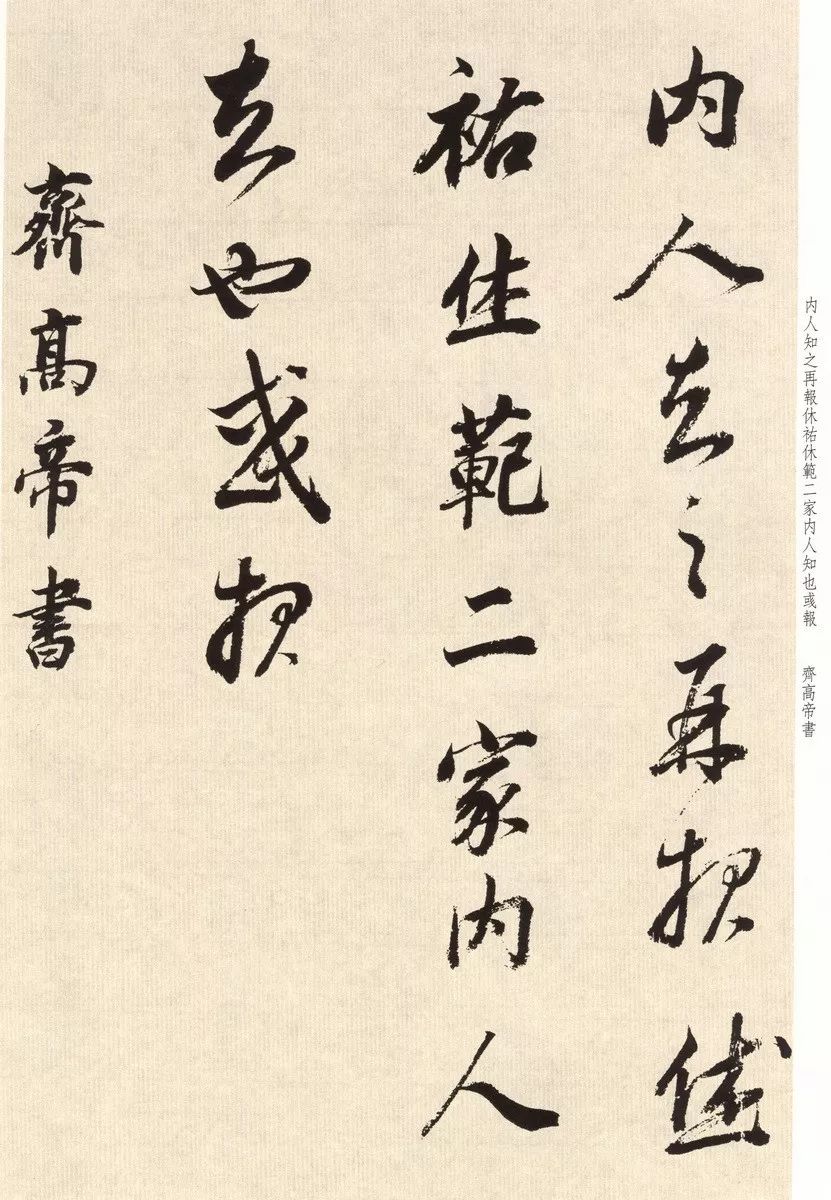 内人知之再報休
祐休範二家内人
知也彧報
齊高帝書
内人知之再報休祐休範二家内人知也彧報 齊高帝書